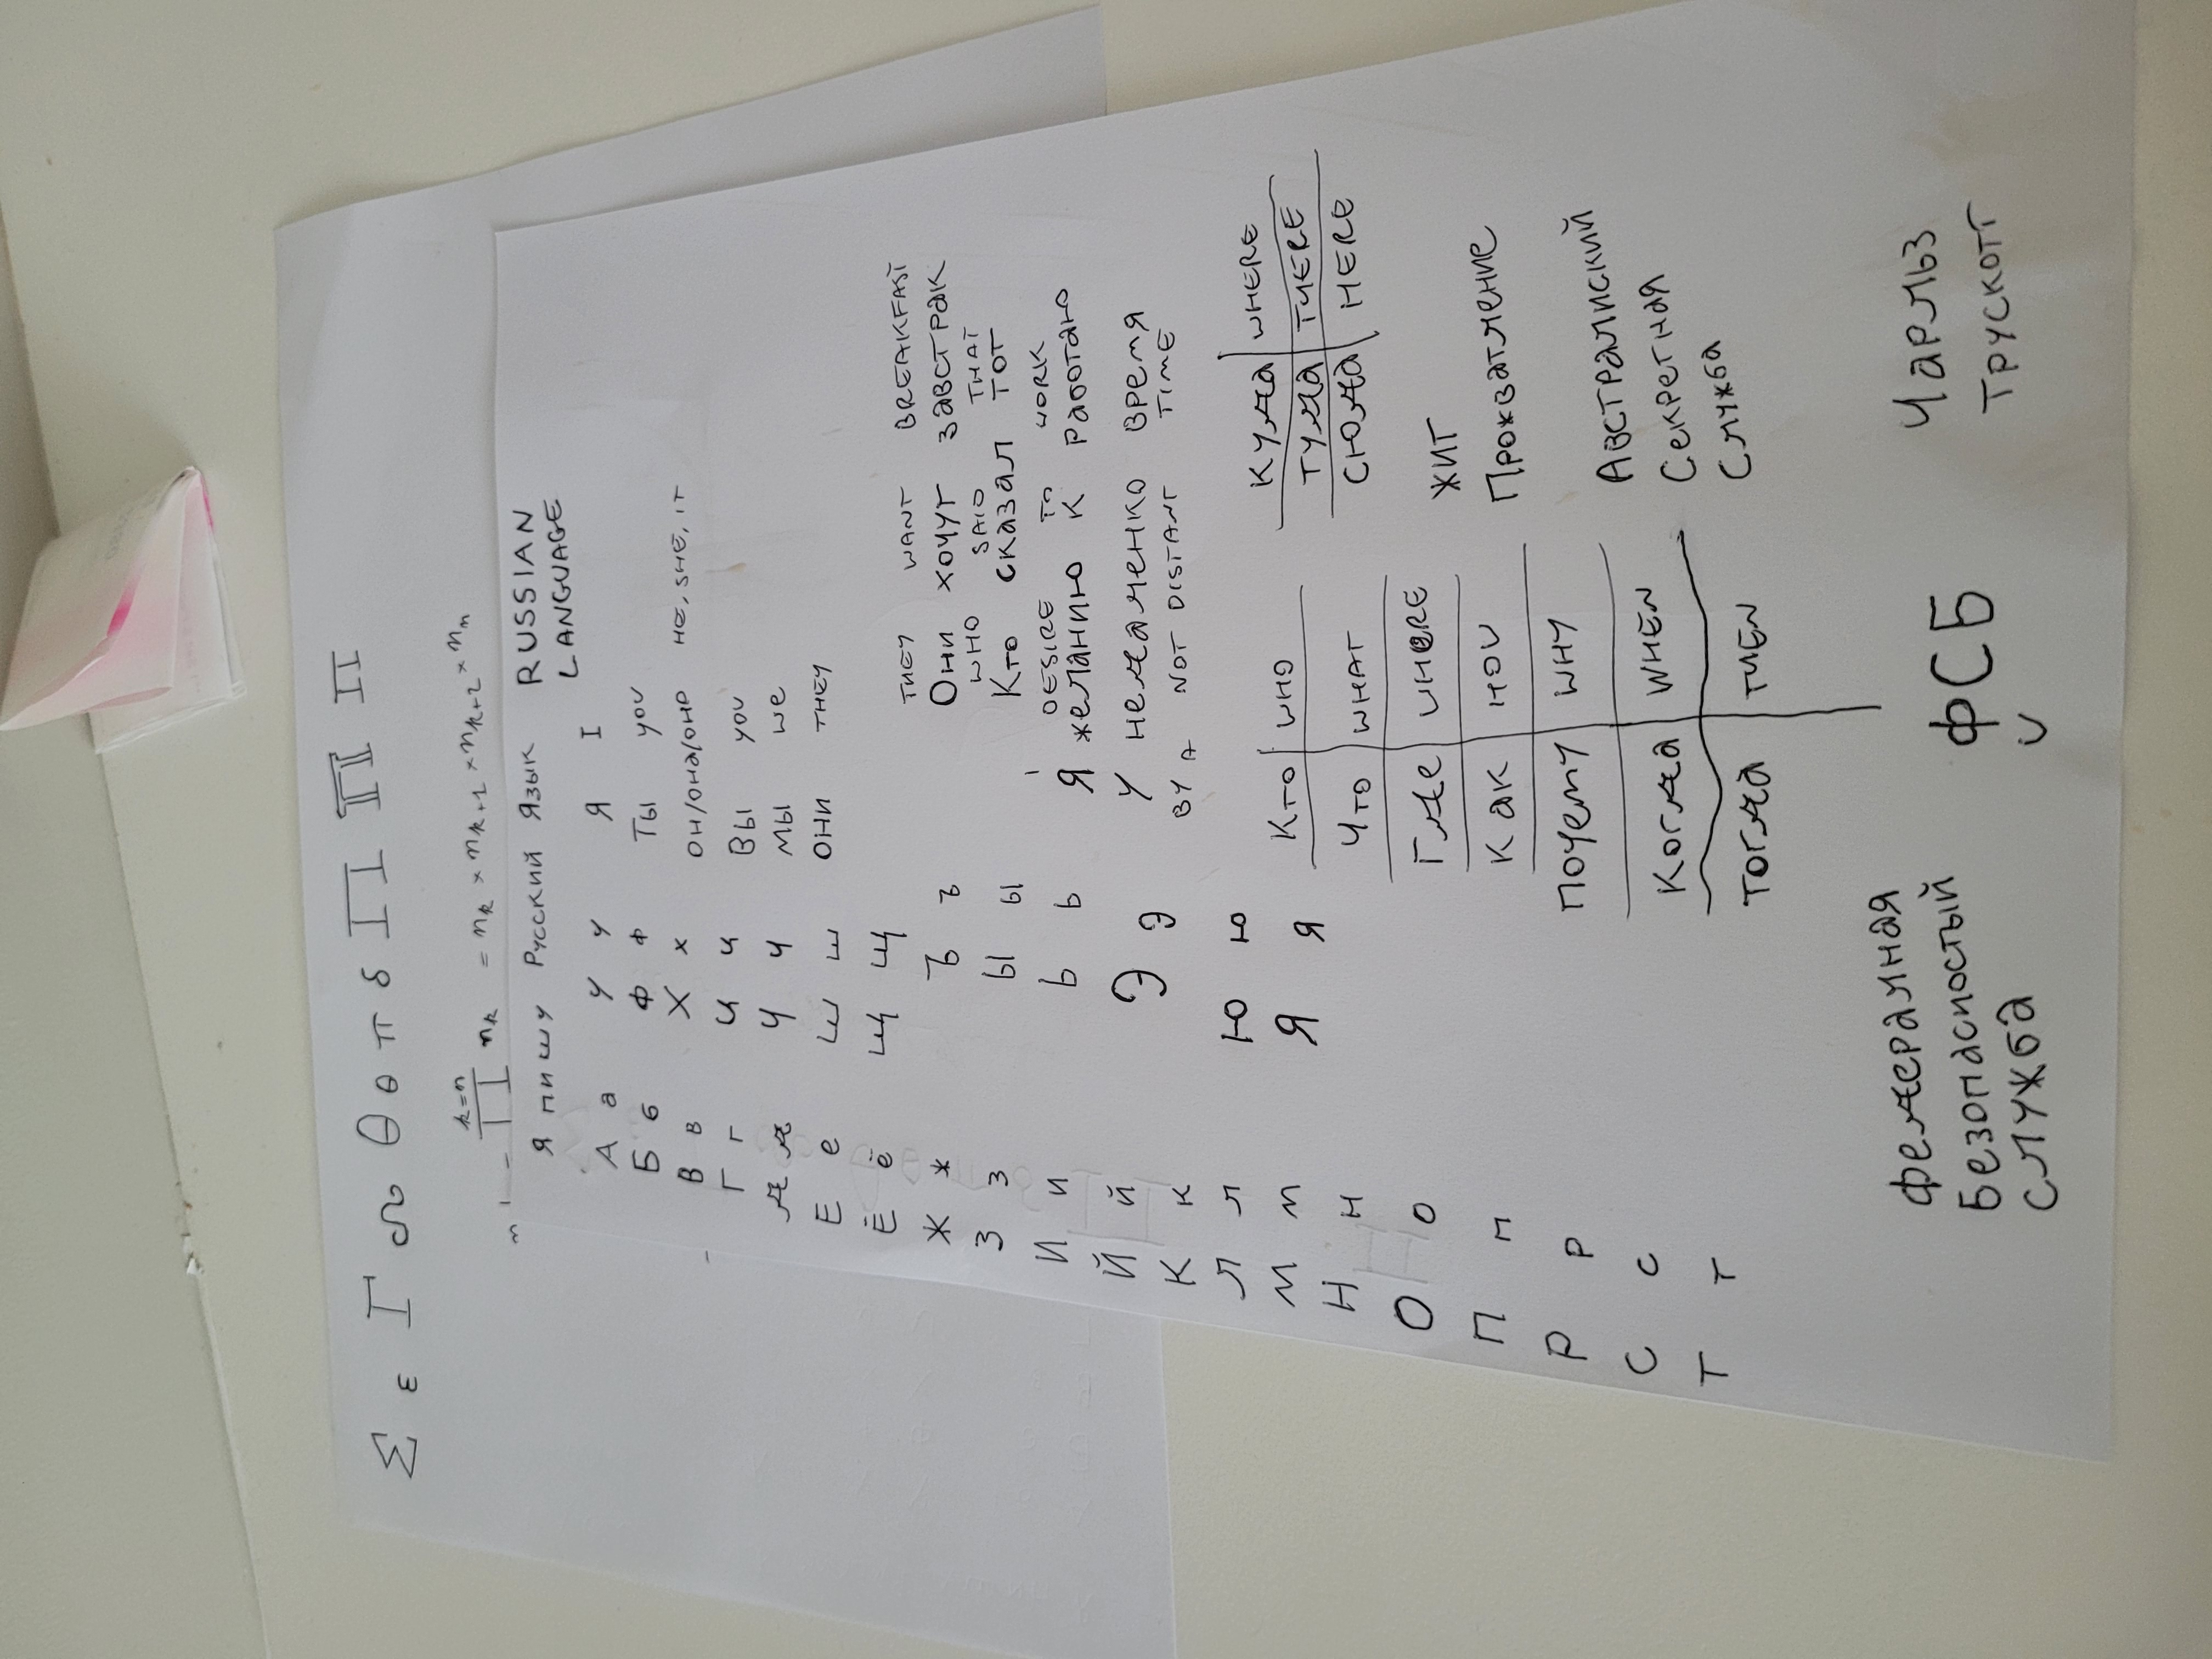 Σ ε Γ ∾ θ θ π δ Π Π Π
k=n
n! = Π nk = nk × nk+1 × nk+2 × nn
Я пишу Русский Язык RUSSIAN LANGUAGE
А а
Б б
В в
Г г
Д д
Е е
Ё ё
Ж ж
З з
И и
Й й
К к
Л л
М м
Н н
О о
П п
Р р
С с
Т т
У у
Ф ф
Х х
Ц ц
Ч ч
Ш ш
Щ щ
Ъ ъ
Ы ы
Ь ь
Э э
Ю ю
Я я
Я I
Ты you
он/она/оно HE, SHE, IT
Вы you
мы we
они THEY
THEY WANT BREAKFAST
Они хочут завстрак
WHO SAID THAT
Кто сказал тот
I DESIRE TO WORK
Я желанию к работаю
У недаленко время
BY A NOT DISTANT TIME
Кто WHO
Что WHAT
Где WHERE
Как HOW
Почему WHY
Когда WHEN
тогда THEN
Куда WHERE
туда THERE
сюда HERE
жит
Прохватление
Австралиский
Секретная
Служба
Федералная
Безопасностый
служба
ФСБ
Чарльз
Трускотт